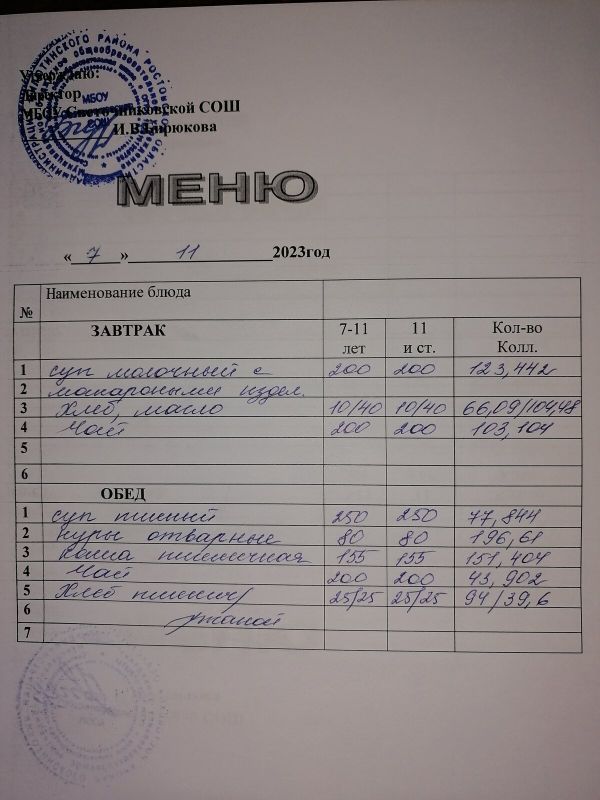 Утверждаю:
Директор
МБОУ Светочниковской СОШ
И.В.Бирюкова
МБОУ
СОШ
МЕНЮ
« 7 » 11 2023год
№ Наименование блюда
ЗАВТРАК 7-11 лет 11 и ст. Кол-во Колл.
1 суп молочный с 200 200 123,442
2 макароными издел.
3 Хлеб, масло 10/40 10/40 66,09/104,48
4 Чай 200 200 103,104
5
6
ОБЕД
1 суп пшений 250 250 77,844
2 куры отварные 80 80 196,61
3 Каша пшеничная 155 155 151,404
4 Чай 200 200 43,902
5 Хлеб пшенич/ 25/25 25/25 94/39,6
6 ржаной
7